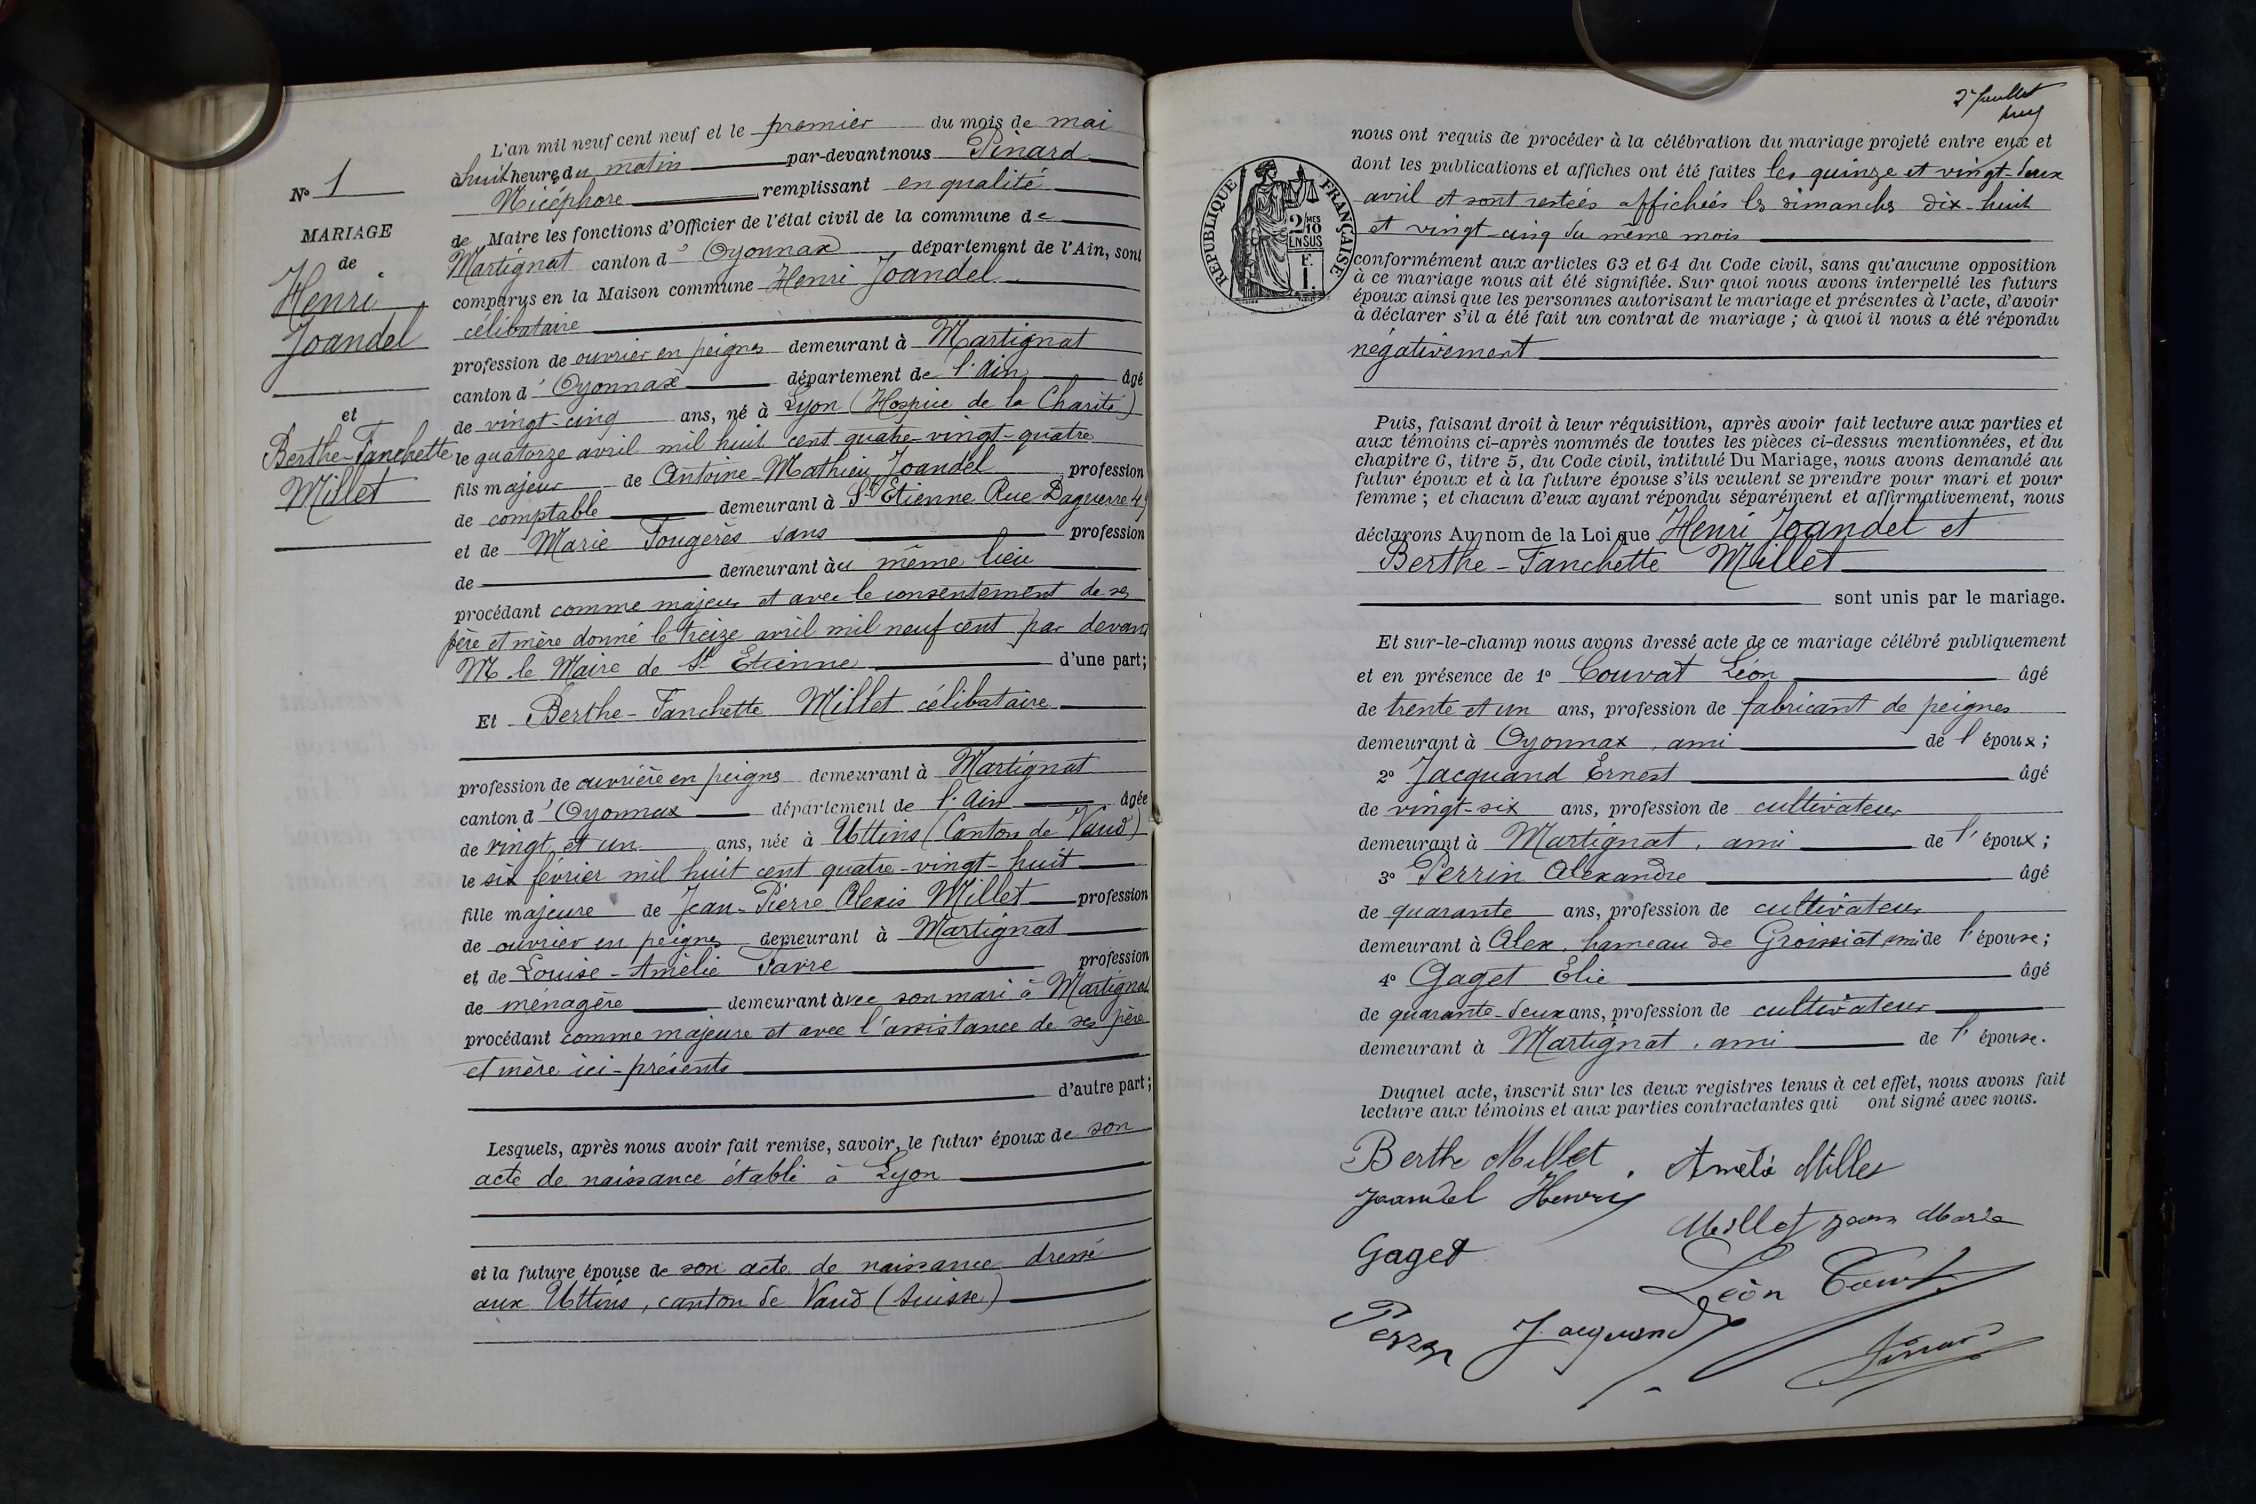 L'an mil neuf cent neuf et le premier du mois de mai
à huit heures du matin par-devant nous Pinard
Nicéphore remplissant en qualité
de Maire les fonctions d'Officier de l'état civil de la commune de
Martignat canton d' Oyonnax département de l'Ain, sont
comparus en la Maison commune Henri Joandel
célibataire
profession de ouvrier en peignes demeurant à Martignat
canton d' Oyonnax département de l'Ain âgé
de vingt-cinq ans, né à Lyon (Hospice de la Charité)
le quatorze avril mil huit cent quatre-vingt-quatre
fils majeur de Antoine-Mathieu Joandel profession
de comptable demeurant à St Etienne Rue Daguerre 45
et de Marie Fougères sans profession
de demeurant au même lieu
procédant comme majeur et avec le consentement de ses
père et mère donné le treize avril mil neuf cent par devant
M. le Maire de St Etienne d'une part;
Et Berthe-Fanchette Millet célibataire
profession de ouvrière en peignes demeurant à Martignat
canton d' Oyonnax département de l'Ain âgée
de vingt et un ans, née à Uttins (Canton de Vaud)
le six février mil huit cent quatre-vingt-huit
fille majeure de Jean-Pierre Alexis Millet profession
de ouvrier en peignes demeurant à Martignat
et de Louise-Amélie Favre profession
de ménagère demeurant avec son mari à Martignat
procédant comme majeure et avec l'assistance de ses père
et mère ici-présents
d'autre part;
Lesquels, après nous avoir fait remise, savoir, le futur époux de son
acte de naissance établi à Lyon
et la future épouse de son acte de naissance dressé
aux Uttins, canton de Vaud (Suisse)
No 1
MARIAGE
de
Henri
Joandel
et
Berthe-Fanchette
Millet
2e feuillet
RÉPUBLIQUE FRANÇAISE
2/MES
10
EN SUS
F.
1.
nous ont requis de procéder à la célébration du mariage projeté entre eux et
dont les publications et affiches ont été faites les quinze et vingt-deux
avril et sont restées affichées les dimanches dix-huit
et vingt-cinq du même mois
conformément aux articles 63 et 64 du Code civil, sans qu'aucune opposition
à ce mariage nous ait été signifiée. Sur quoi nous avons interpellé les futurs
époux ainsi que les personnes autorisant le mariage et présentes à l'acte, d'avoir
à déclarer s'il a été fait un contrat de mariage; à quoi il nous a été répondu
négativement
Puis, faisant droit à leur réquisition, après avoir fait lecture aux parties et
aux témoins ci-après nommés de toutes les pièces ci-dessus mentionnées, et du
chapitre 6, titre 5, du Code civil, intitulé Du Mariage, nous avons demandé au
futur époux et à la future épouse s'ils veulent se prendre pour mari et pour
femme; et chacun d'eux ayant répondu séparément et affirmativement, nous
déclarons Au nom de la Loi que Henri Joandel et
Berthe-Fanchette Millet
sont unis par le mariage.
Et sur-le-champ nous avons dressé acte de ce mariage célébré publiquement
et en présence de 1o Couvat Léon âgé
de trente et un ans, profession de fabricant de peignes
demeurant à Oyonnax, ami de l'époux;
2o Jacquand Ernest âgé
de vingt-six ans, profession de cultivateur
demeurant à Martignat, ami de l'époux;
3o Perrin Alexandre âgé
de quarante ans, profession de cultivateur
demeurant à Alex, hameau de Groissiat, ami de l'épouse;
4o Gaget Elie âgé
de quarante-deux ans, profession de cultivateur
demeurant à Martignat, ami de l'épouse.
Duquel acte, inscrit sur les deux registres tenus à cet effet, nous avons fait
lecture aux témoins et aux parties contractantes qui ont signé avec nous.
Berthe Millet. Amélie Millet
Joandel Henri
Millet Jean Marie
Gaget
Léon Couvat
Perrin Jacquand
Pinard